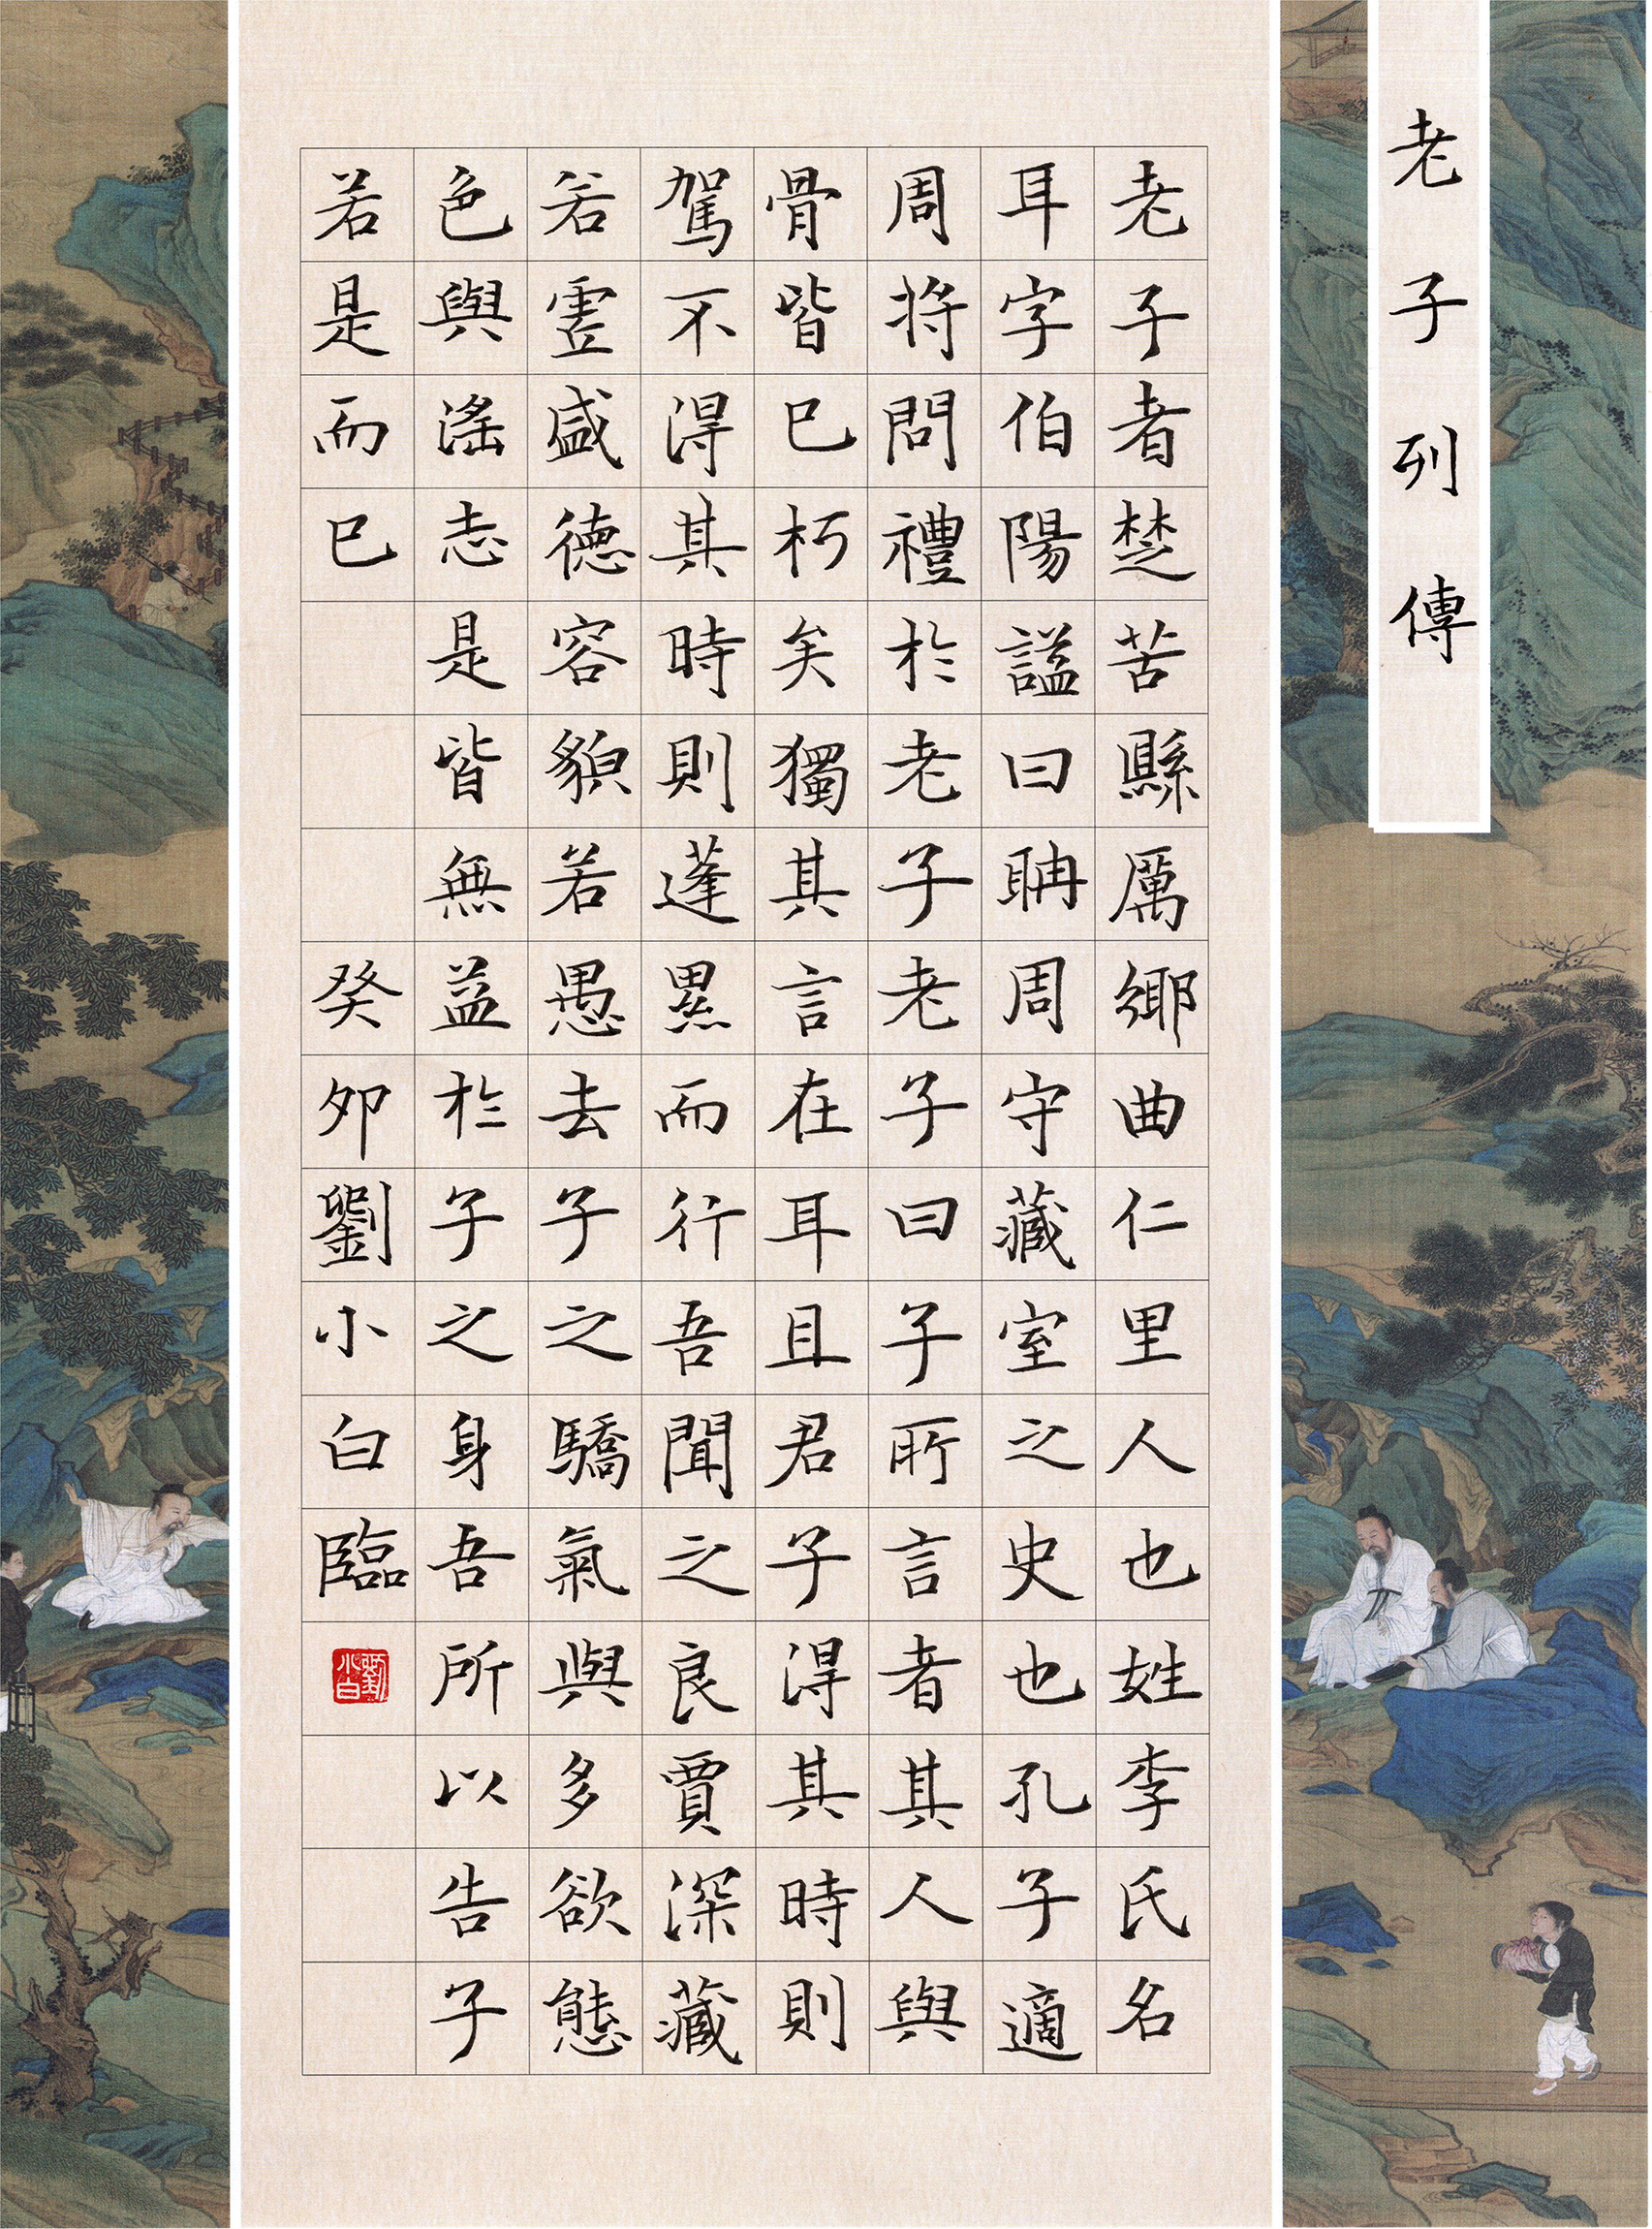 老子列傳
老子者楚苦縣厲鄉曲仁里人也姓李氏名
耳字伯陽謚曰聃周守藏室之史也孔子適
周將問禮於老子老子曰子所言者其人與
骨皆已朽矣獨其言在耳且君子得其時則
駕不得其時則蓬累而行吾聞之良賈深藏
若虛盛德容貌若愚去子之驕氣與多欲態
色與淫志是皆無益於子之身吾所以告子
若是而已
癸卯劉小白臨
劉小白